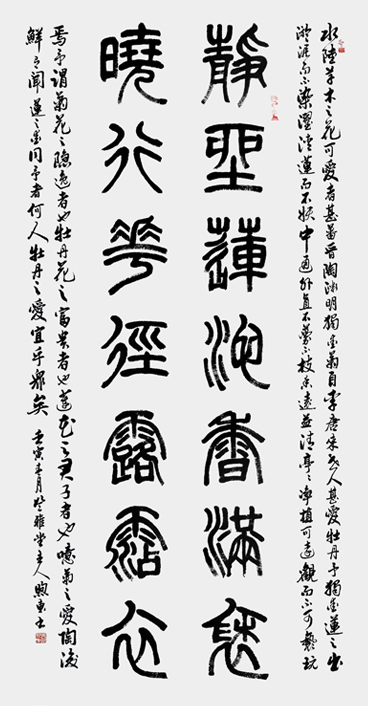 水陸草木之花可愛者甚蕃晉陶淵明獨愛菊自李唐來世人甚愛牡丹予獨愛蓮之出
淤泥而不染濯清漣而不妖中通外直不蔓不枝香遠益清亭々淨植可遠觀而不可褻玩
靜坐蓮池香滿袖
曉行華徑露霑衣
焉予謂菊花之隱逸者也牡丹花之富貴者也蓮花之君子者也噫菊之愛陶後
鮮有聞蓮之愛同予者何人牡丹之愛宜乎眾矣 壬寅